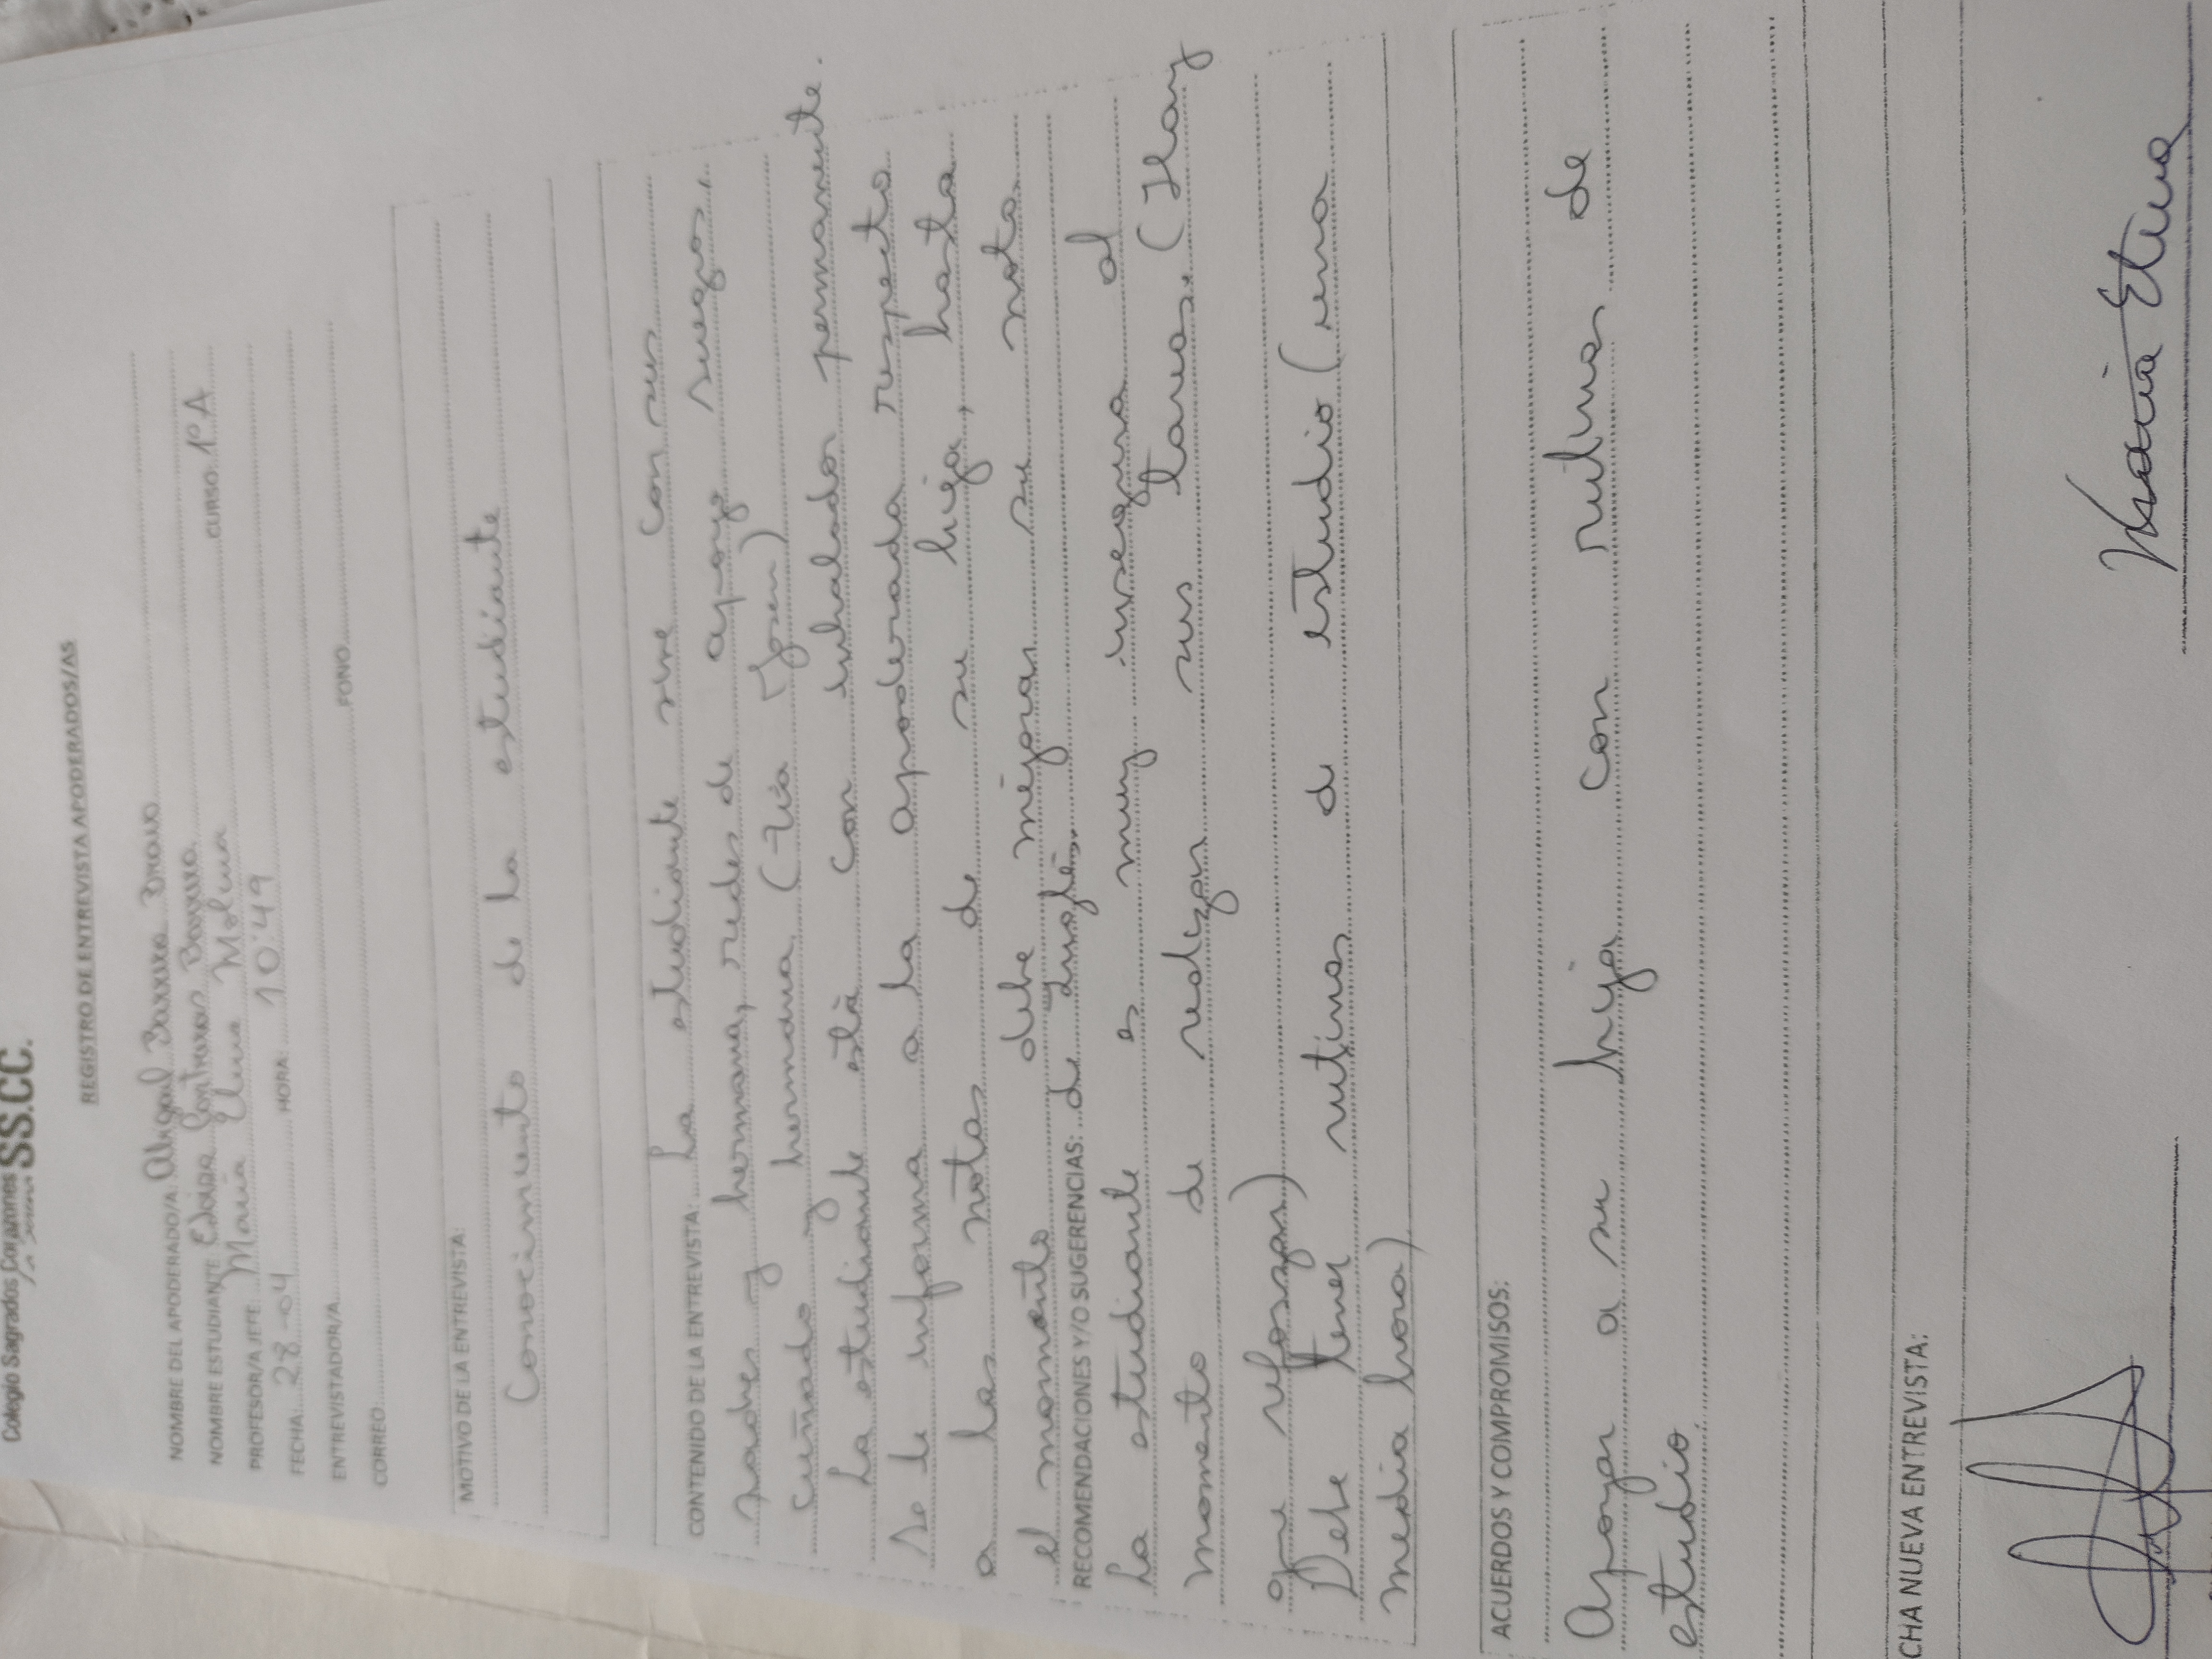 Colegio Sagrados Corazones SS.CC.
La Serena
REGISTRO DE ENTREVISTA APODERADOS/AS
NOMBRE DEL APODERADO/A: Abigal Barrera Bravo
NOMBRE ESTUDIANTE Eloisa Contreras Barrera CURSO 1°A
PROFESOR/A JEFE: Maria Elena Molina
FECHA: 28-04 HORA 10:49
ENTREVISTADOR/A
CORREO: FONO
MOTIVO DE LA ENTREVISTA:
Conocimiento de la estudiante
CONTENIDO DE LA ENTREVISTA: La estudiante vive con sus
padres y hermana, redes de apoyo suegros,
cuñado y hermana (tía Josen)
La estudiante está con inhalador permanente.
Se le informa a la apoderada respecto
a las notas de su hija, hasta
el momento debe mejorar su nota
RECOMENDACIONES Y/O SUGERENCIAS: de Inglés.
La estudiante es muy insegura al
momento de realizar sus tareas. (Hay
que reforzar)
Debe tener rutinas de estudio (una
media hora)
ACUERDOS Y COMPROMISOS:
Apoyar a su hija con rutinas de
estudio.
CHA NUEVA ENTREVISTA:
Maria Elena